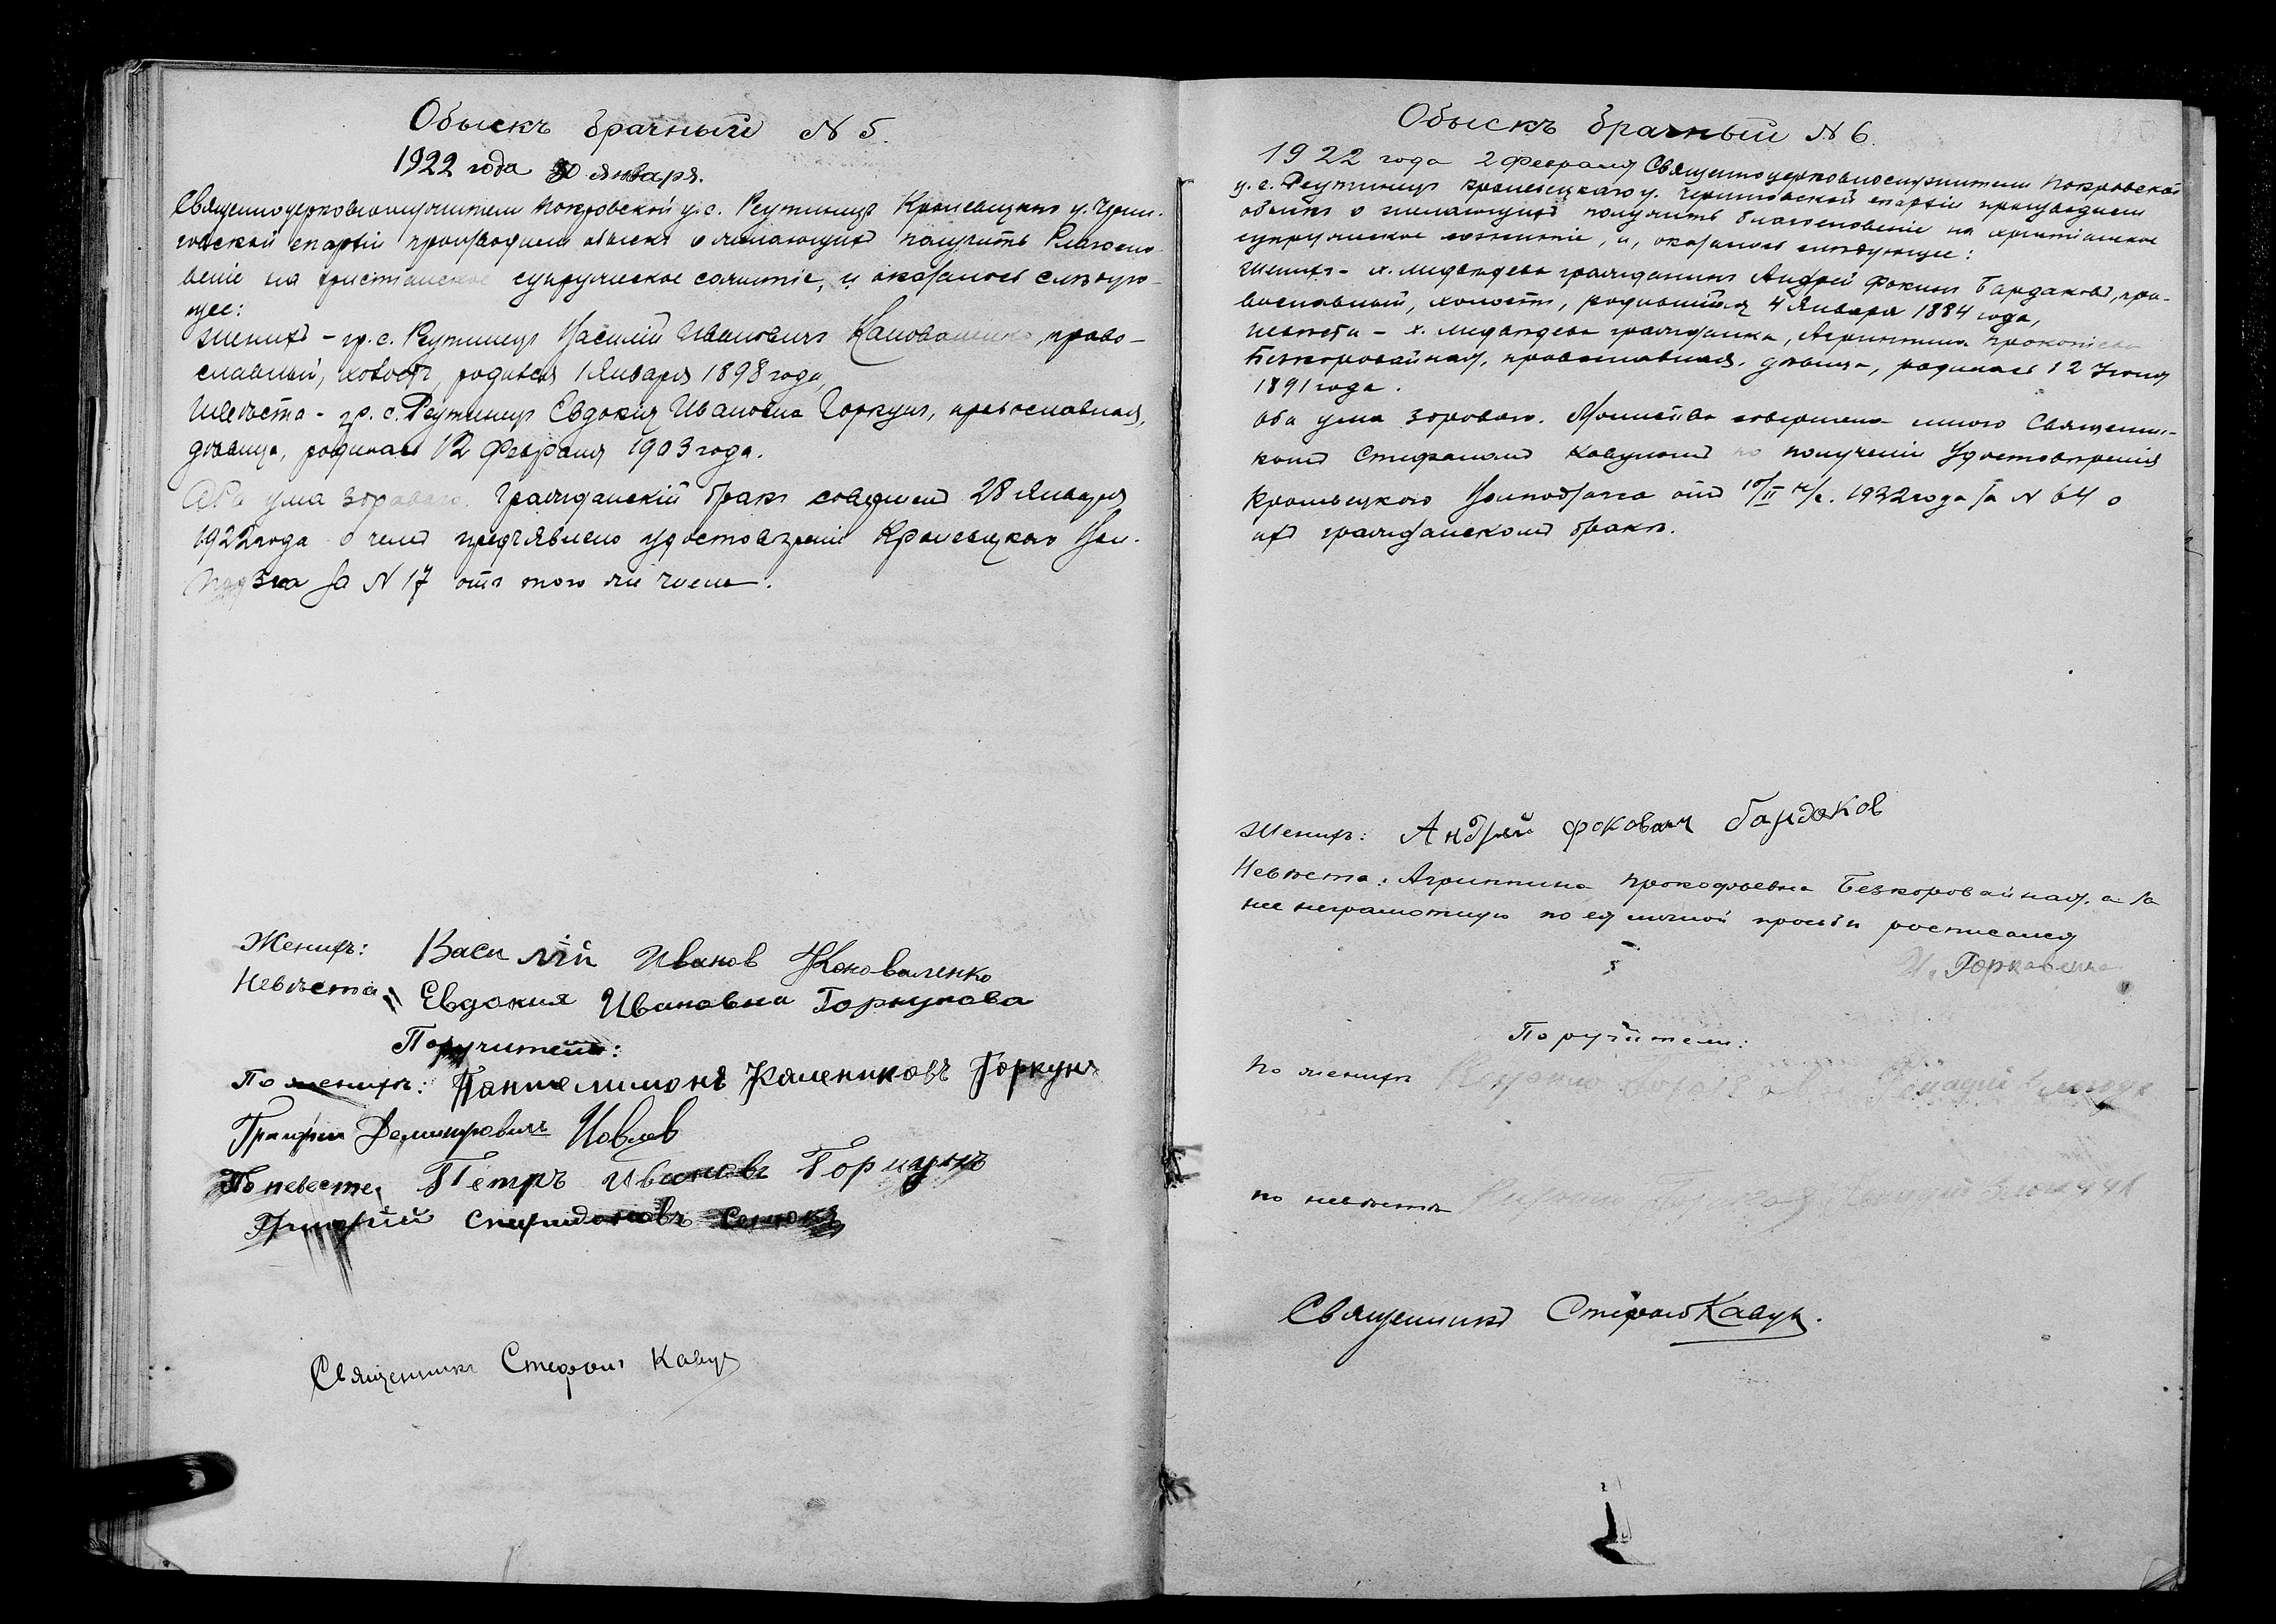 Обыскъ брачный N 5.
1922 года 30 января.
Священноцерковнослужители Покровской ц. с. Реутинцъ Кролевецкаго у. Черни-
говской епархіи производили обыскъ о желающихъ получить благосло-
веніе на христіанское супружеское сожитіе, и оказалось слѣдую-
щее:
Женихъ - гр. с. Реутинцъ Василій Ивановичъ Коноваленко, право-
славный, холостъ, родился 1 Января 1898 года,
Невѣста - гр. с. Реутинцъ Евдокія Ивановна Горкунъ, православная,
дѣвица, родилась 12 Февраля 1903 года.
Оба ума здороваго. Гражданскій бракъ 28 Января
1922 года о чемъ предъявлено удостовѣреніе Кролевецкаго
за N 17 отъ того же числа.
Женихъ: Василій Иванов Коноваленко
Невѣста: Евдокия Ивановна Горкунова
Поручители:
По женихѣ: Пантелимонъ Калениковъ Горкунъ
Димитровичъ
По невесте: Петръ Ивановъ Горкунъ
Григорій Спиридоновъ
Священникъ Стефанъ Кавун
Обыскъ брачный N 6.
1922 года 2 Февраля Священноцерковнослужители Покровской
ц. с. Реутинцъ Кролевецкаго у. Черниговской епархіи производили
обыскъ о желающихъ получить благословеніе на христіанское
супружеское сожитіе, и, оказалось слѣдующее:
Женихъ - х. гражданинъ Андрей Фокинъ Бардаковъ, пра-
вославный, холостъ, родившійся 4 Января 1884 года,
Невѣста - х. гражданка, Агриппина Прокопіева
Безкоровайная, православная, дѣвица, родилась 12 Іюня
1891 года.
Оба ума здороваго. совершено мною Священни-
комъ Стефаномъ Кавуномъ по полученіи Удостовѣренія
Кролевецкаго отъ 1922 года за N 64 о
ихъ гражданскомъ бракѣ.
Женихъ: Андрей Фокович Бардаков
Невѣста: Агриппина Прокофьевна Безкоровайная, а за
нее неграмотную по ея личной просьбѣ росписался
Поручители:
по женихѣ
по невѣстѣ
Священникъ Стефанъ Кавун.